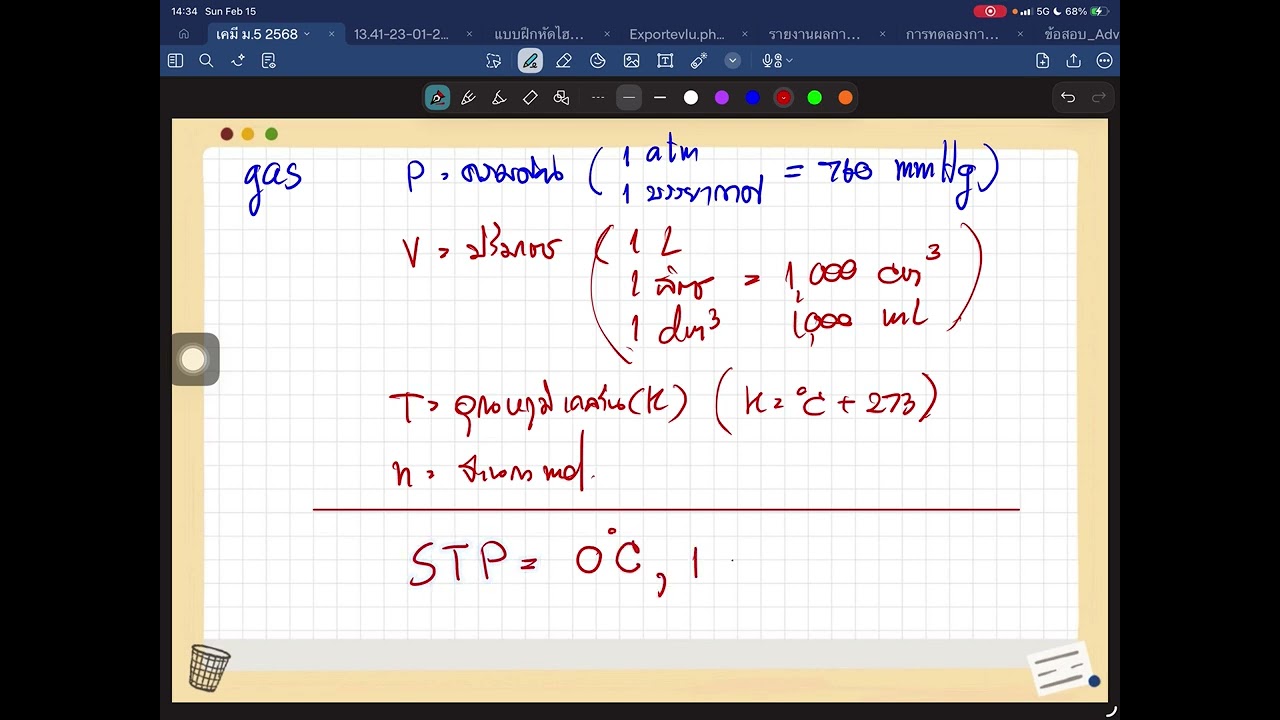 14:34 Sun Feb 15 5G 68%
เคมี ม.5 2568 13.41-23-01-2... แบบฝึกหัดไฮ... Exportevlu.ph... รายงานผลกา... การทดลองกา... ข้อสอบ_Adv
gas P = ความดัน ( 1 atm
1 บรรยากาศ = 760 mmHg )
V = ปริมาตร ( 1 L
1 ลิตร = 1,000 cm³
1 dm³ 1,000 mL )
T = อุณหภูมิเคลวิน (K) ( K = °C + 273 )
n = จำนวน mol
STP = 0°C, 1